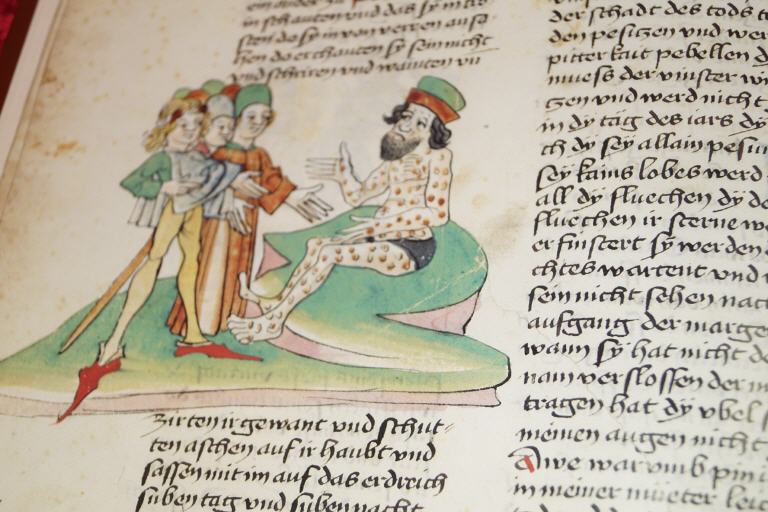 ein ander
in schauten vnd das sy in ers
sten do sy in von verren ansa
hen do erchanten sy sein nicht
vnd schriren vnd wainten vn
zirten ir gewant vnd schut-
ten aschen auf ir haubt vnd
sassen mit im auf das erdreich
suben tag vnd suben nacht
der schadt des tods
den pesitzen vnd wer
pitterkait pebellen
muess der vinster
gen vnd werd nicht
in dy täg des iars dy
ch dy sey allain
sey kains lobes werd
all dy fluechen dy de
fluechen ir sterne
erfinstert sy werden
chtes wartent vnd
sein nicht sehen nach
aufgang der marge
wann sy hat nicht de
nam verslossen der
tragen hat dy vbel
meinen augen nicht
Awe warumb pin i
in meiner mueter leic